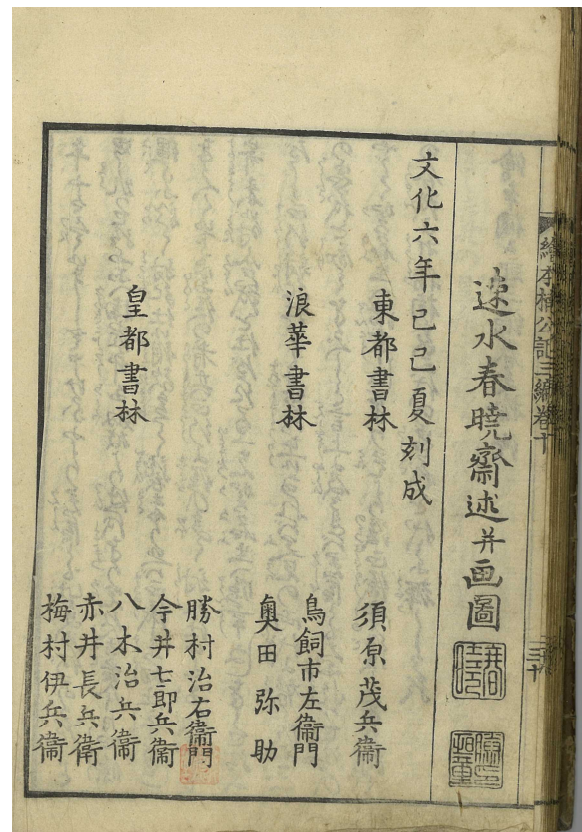 繪本楠公記三編巻十
三十
速水春暁齋述并画圖
文化六年己巳夏刻成
東都書林
須原茂兵衞
浪華書林
鳥飼市左衞門
奥田弥助
皇都書林
勝村治右衞門
今井七郎兵衞
八木治兵衞
赤井長兵衞
梅村伊兵衞